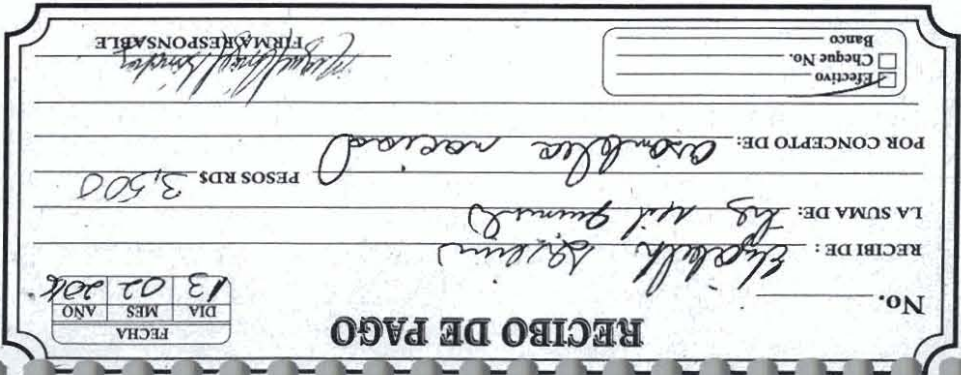 RECIBO DE PAGO
FECHA
DIA MES AÑO
13 02
No.
RECIBI DE: Elizabeth
LA SUMA DE: mil quinientos
PESOS RD$ 3,500
POR CONCEPTO DE: asamblea nacional
Efectivo
Cheque No.
Banco
FIRMA RESPONSABLE